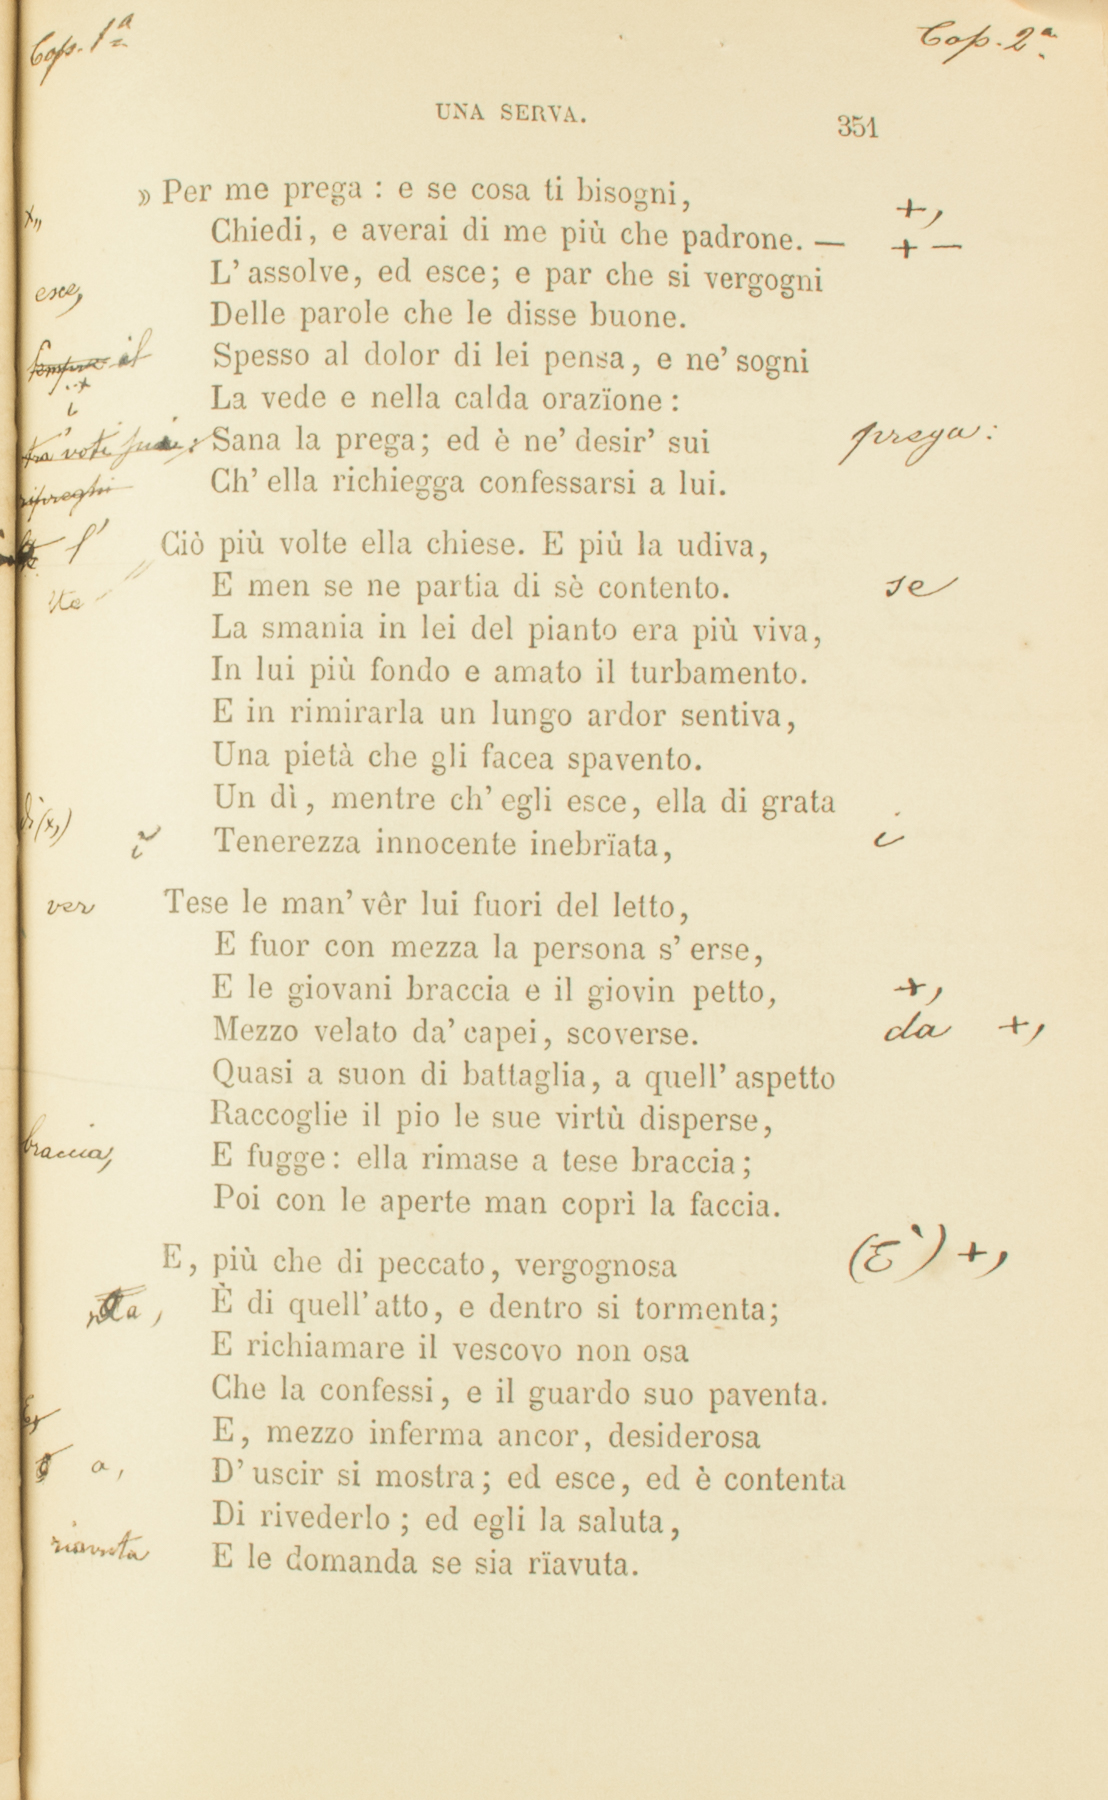 Cop. 1ª Cop. 2ª
UNA SERVA. 351
» Per me prega : e se cosa ti bisogni, +,
x,, Chiedi, e averai di me più che padrone. — + —
L' assolve, ed esce; e par che si vergogni
esce, Delle parole che le disse buone.
sempre il Spesso al dolor di lei pensa, e ne' sogni
La vede e nella calda orazïone :
tra' voti suoi: Sana la prega; ed è ne' desir' sui prega:
ripreghi Ch' ella richiegga confessarsi a lui.
l' Ciò più volte ella chiese. E più la udiva,
E men se ne partia di sè contento. se
La smania in lei del pianto era più viva,
In lui più fondo e amato il turbamento.
E in rimirarla un lungo ardor sentiva,
Una pietà che gli facea spavento.
dì (x,) Un dì, mentre ch' egli esce, ella di grata
ĭ Tenerezza innocente inebrïata, i
ver Tese le man' vêr lui fuori del letto,
E fuor con mezza la persona s' erse,
E le giovani braccia e il giovin petto, +,
Mezzo velato da' capei, scoverse. da +,
Quasi a suon di battaglia, a quell' aspetto
Raccoglie il pio le sue virtù disperse,
braccia, E fugge: ella rimase a tese braccia;
Poi con le aperte man coprì la faccia.
E, più che di peccato, vergognosa (E') +,
È di quell' atto, e dentro si tormenta;
E richiamare il vescovo non osa
Che la confessi, e il guardo suo paventa.
E, mezzo inferma ancor, desiderosa
a, D' uscir si mostra; ed esce, ed è contenta
Di rivederlo ; ed egli la saluta,
riavuta E le domanda se sia rïavuta.